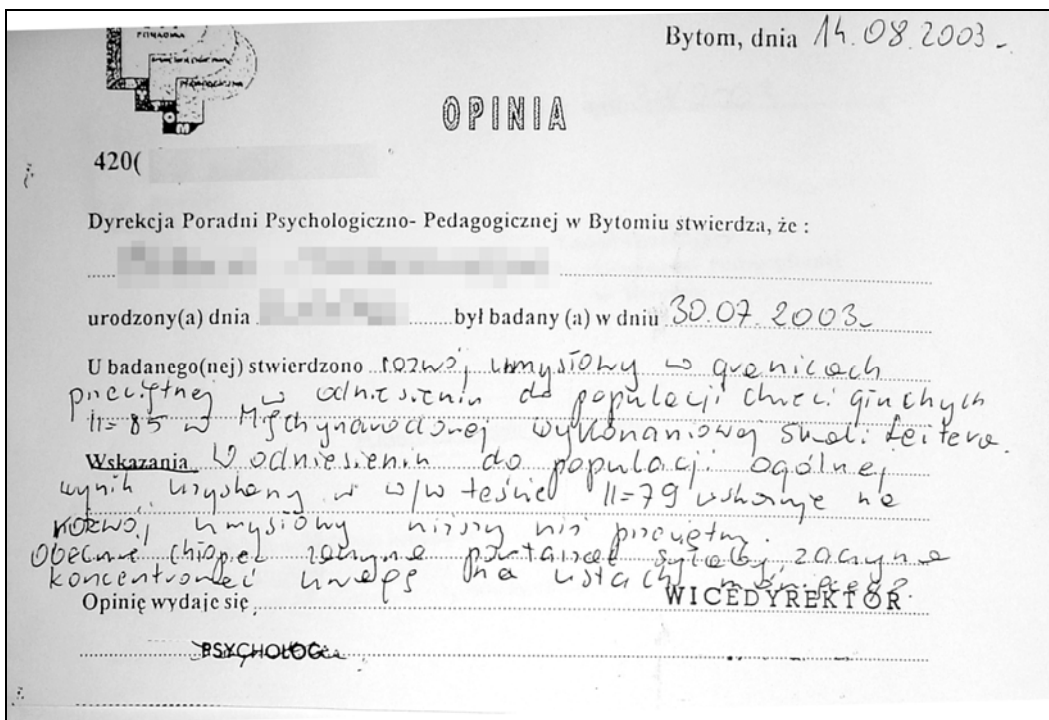 PORADNIA
Bytom, dnia 14.08.2003 -
OPINIA
420(
Dyrekcja Poradni Psychologiczno- Pedagogicznej w Bytomiu stwierdza, że :
urodzony(a) dnia ........ był badany (a) w dniu 30.07.2003 -
U badanego(nej) stwierdzono rozwój umysłowy w granicach
przeciętnej w odniesieniu do populacji dzieci głuchych
II=85 w Międzynarodowej Wykonaniowej Skali Leitera.
Wskazania W odniesieniu do populacji ogólnej
wynik uzyskany w w/w teście II=79 wskazuje na
rozwój umysłowy niższy niż przeciętny.
Obecnie chłopiec zaczyna powtarzać sylaby, zaczyna
koncentrować uwagę na ustach mówiącego.
Opinię wydaje się
WICEDYREKTOR
PSYCHOLOG